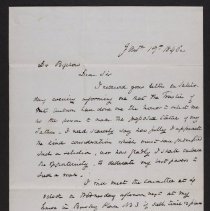 Janry 19th 1846
Dr Bigelow
Dear Sir
I received your letter on Saturday
evening informing me that the Trustees of
Mt Auburn have done me the honor to select me
as the person to make the proposed Statue of my
Father. I need scarcely say how fully I appreciate
the kind consideration which must have prompted
such a selection, and how gladly I shall embrace
the opportunity to dedicate my best powers to
such a work.
I will meet the Committee at 4
o'clock on Wednesday afternoon next at my
house in